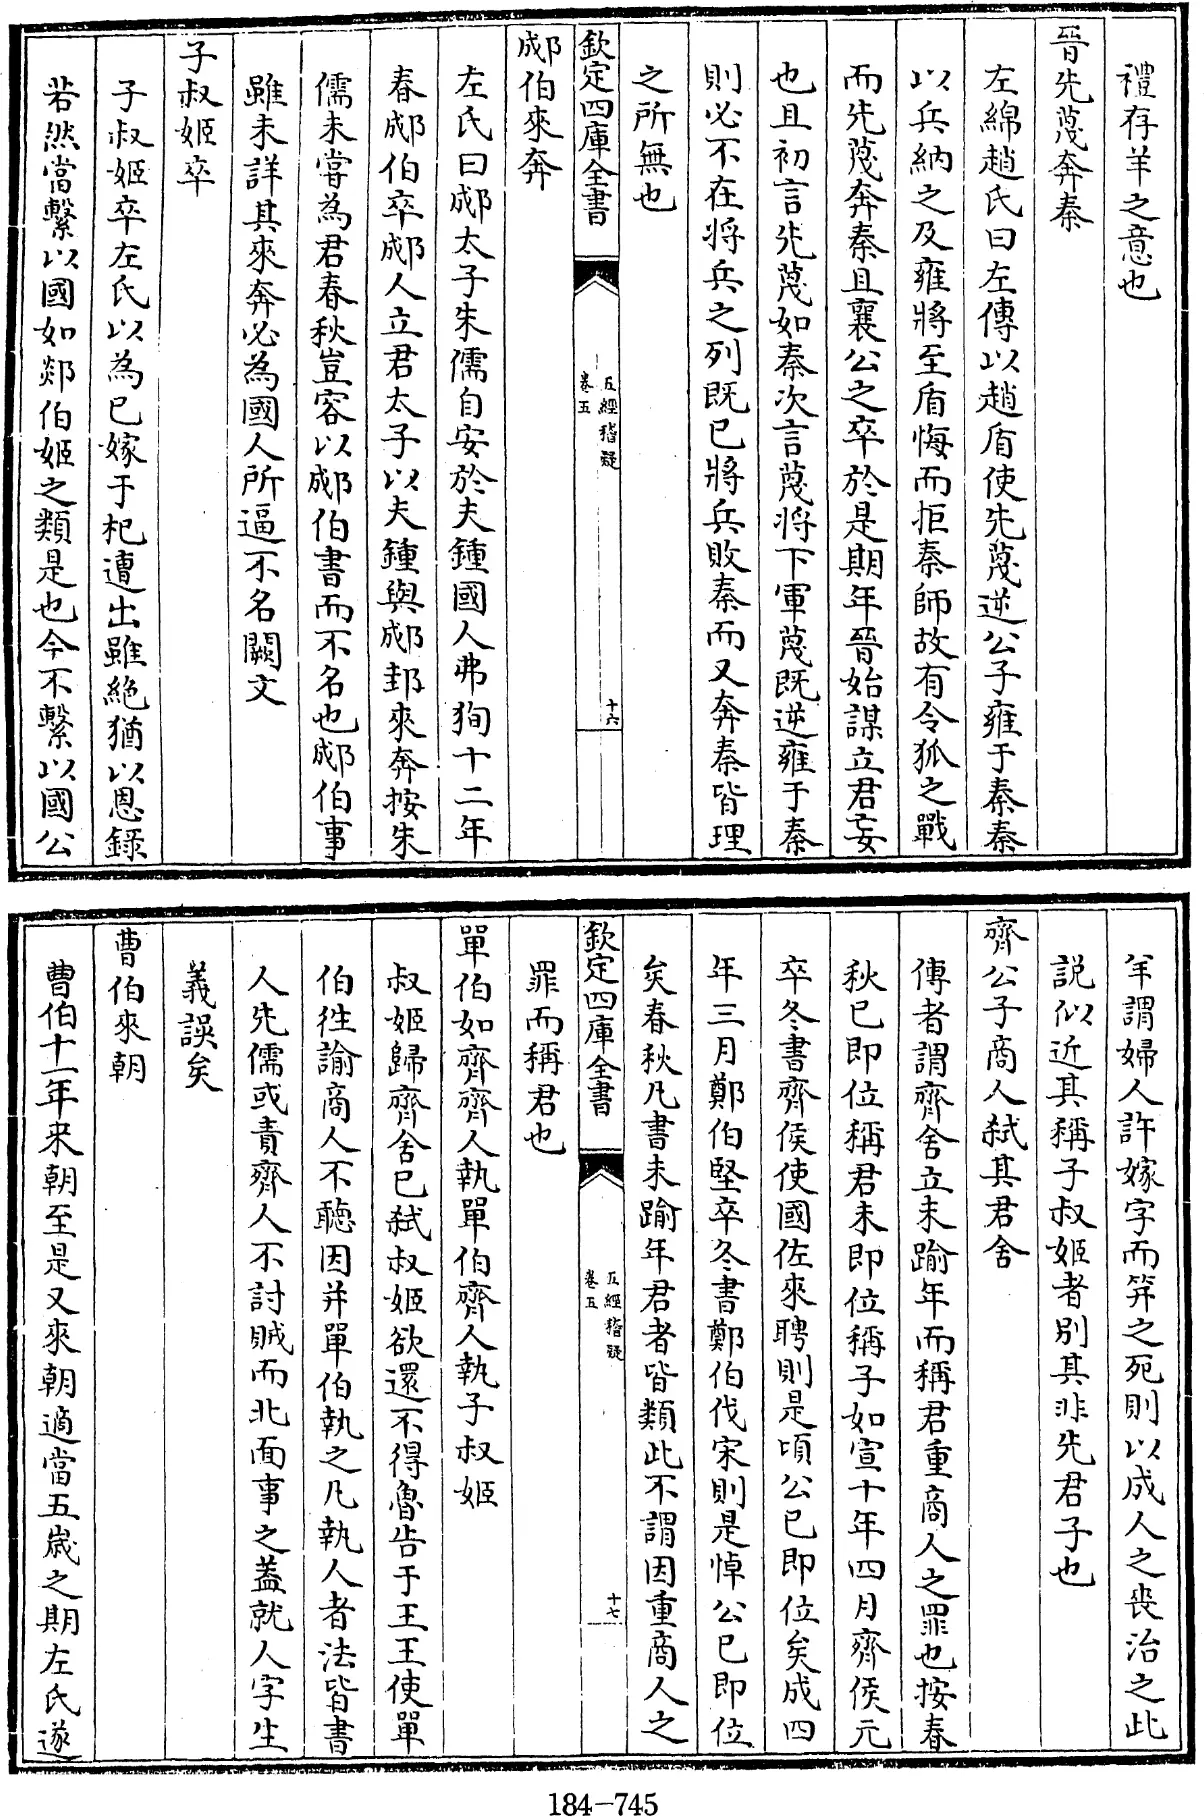 禮存羊之意也
晉先蔑奔秦
左綿趙氏曰左傳以趙盾使先蔑逆公子雍于秦秦
以兵納之及雍將至盾悔而拒秦師故有令狐之戰
而先蔑奔秦且襄公之卒於是期年晉始謀立君妄
也且初言先蔑如秦次言蔑將下軍蔑既逆雍于秦
則必不在將兵之列既已將兵敗秦而又奔秦皆理
之所無也
欽定四庫全書
五經稽疑
卷五
十六
郕伯來奔
左氏曰郕太子朱儒自安於夫鍾國人弗狥十二年
春郕伯卒郕人立君太子以夫鍾與郕邽來奔按朱
儒未嘗為君春秋豈容以郕伯書而不名也郕伯事
雖未詳其來奔必為國人所逼不名闕文
子叔姬卒
子叔姬卒左氏以為已嫁于杞遭出雖絶猶以恩錄
若然當繫以國如郯伯姬之類是也今不繫以國公
羊謂婦人許嫁字而笄之死則以成人之喪治之此
説似近其稱子叔姬者別其非先君子也
齊公子商人弑其君舍
傳者謂齊舍立未踰年而稱君重商人之罪也按春
秋已即位稱君未即位稱子如宣十年四月齊侯元
卒冬書齊侯使國佐來聘則是頃公已即位矣成四
年三月鄭伯堅卒冬書鄭伯伐宋則是悼公已即位
矣春秋凡書未踰年君者皆類此不謂因重商人之
欽定四庫全書
五經稽疑
卷五
十七
罪而稱君也
單伯如齊齊人執單伯齊人執子叔姬
叔姬歸齊舍已弑叔姬欲還不得魯告于王王使單
伯徃諭商人不聽因并單伯執之凡執人者法皆書
人先儒或責齊人不討賊而北面事之葢就人字生
義誤矣
曹伯來朝
曹伯十一年來朝至是又來朝適當五歲之期左氏遂
184-745